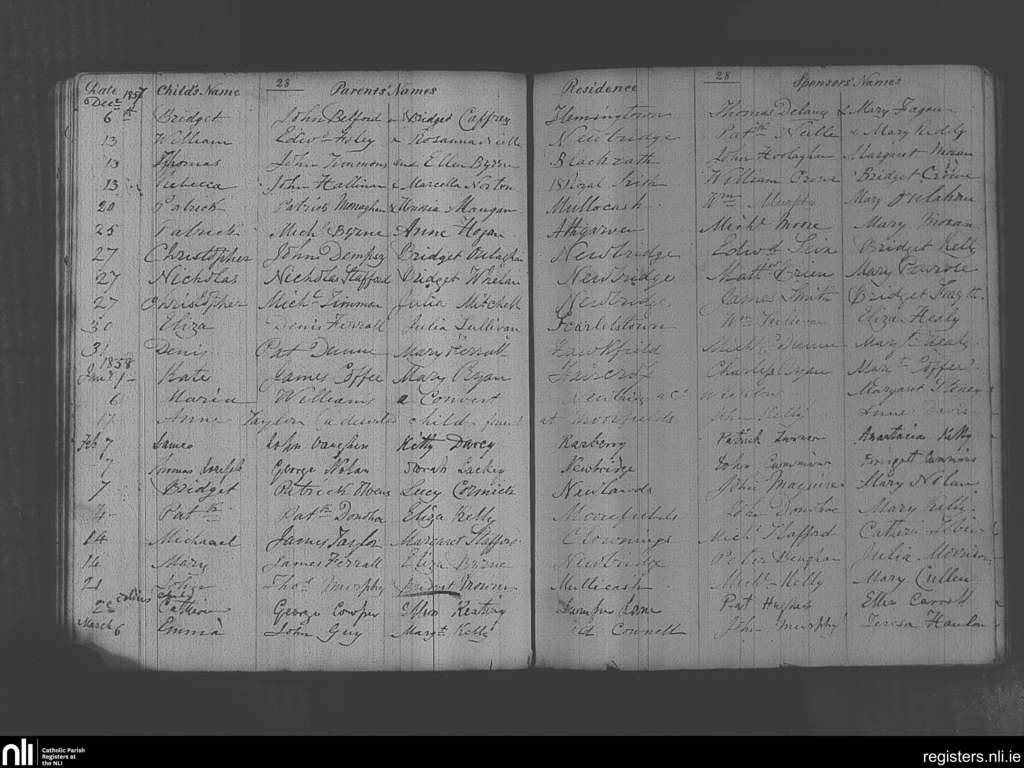 Date 1857 Child's Name 28 Parents Names Residence 28 Sponsors' Names
Decr
6th Bridget John Belford & Bridget Caffrey Flemingtown Thomas Delany & Mary Fagan
13 William Edwd & Rosanna Neville Newbridge Patk Neille & Mary Reddy
13 Thomas John Timmons and Ellen Byrne Blackrath John Hoolaghan Margaret Moran
13 Rebecca John Hallinan & Marcella Norton 18 Royal Irish William Crowe Bridget Crowe
20 Patrick Patrick Monaghan & Mangan Mullacash Wm Murphy Mary
25 Patrick Michl Byrne Anne Hogan Athgarvan Michl Moore Mary Moran
27 Christopher John Dempsey Bridget Newbridge Edwd Bridget Kelly
27 Nicholas Nicholas Stafford Bridget Whelan Newbridge Matth Green Mary Penrose
27 Christopher Michl Timmon Julia Mitchell Newbridge James Smith Bridget Smyth
30 Eliza Denis Ferrall Julia Sullivan Scarletstown Wm Sullivan Eliza Healy
31 Denis Pat Dunne Mary Ferrall Hawkfield Michl Dunne Mary Healy
1858
Jany 1 Kate James Coffee Mary Ryan Faircroft Charles Ryan Mart Coffee
6 Maria Williams a Convert Margaret
17 Anne Taylor (a deserted child found at Moorfields John Kelly Anne Davis
Feb 7 James John Vaughan Kitty Darcy Rasberry Patrick Turner Anastacia Kelly
7 Thomas Joseph George Nolan Sarah Lackey Newbridge John Cummins Bridget Cummins
7 Bridget Patrick Owens Lucy Cormick Newlands John Maguire Mary Nolan
Patk Patk Donohoe Eliza Kelly Moorefields John Donohoe Mary Kelly
14 Michael James Taylor Margaret Stafford Clownings Michl Stafford Cathern
14 Mary James Ferrall Eliza Byrne Newbridge Peter Deughan Julia Morrison
21 John Thos Murphy Bridget Mullacash Michl Kelly Mary Cullen
28 Cathern George Cowper Ellen Keating Pat Hughes Ellen Carroll
March 6 Emma John Guy Maryt Kelly Id Connell John Murphy Teresa Hanlon
nli Catholic Parish
Registers at
the NLI
registers.nli.ie